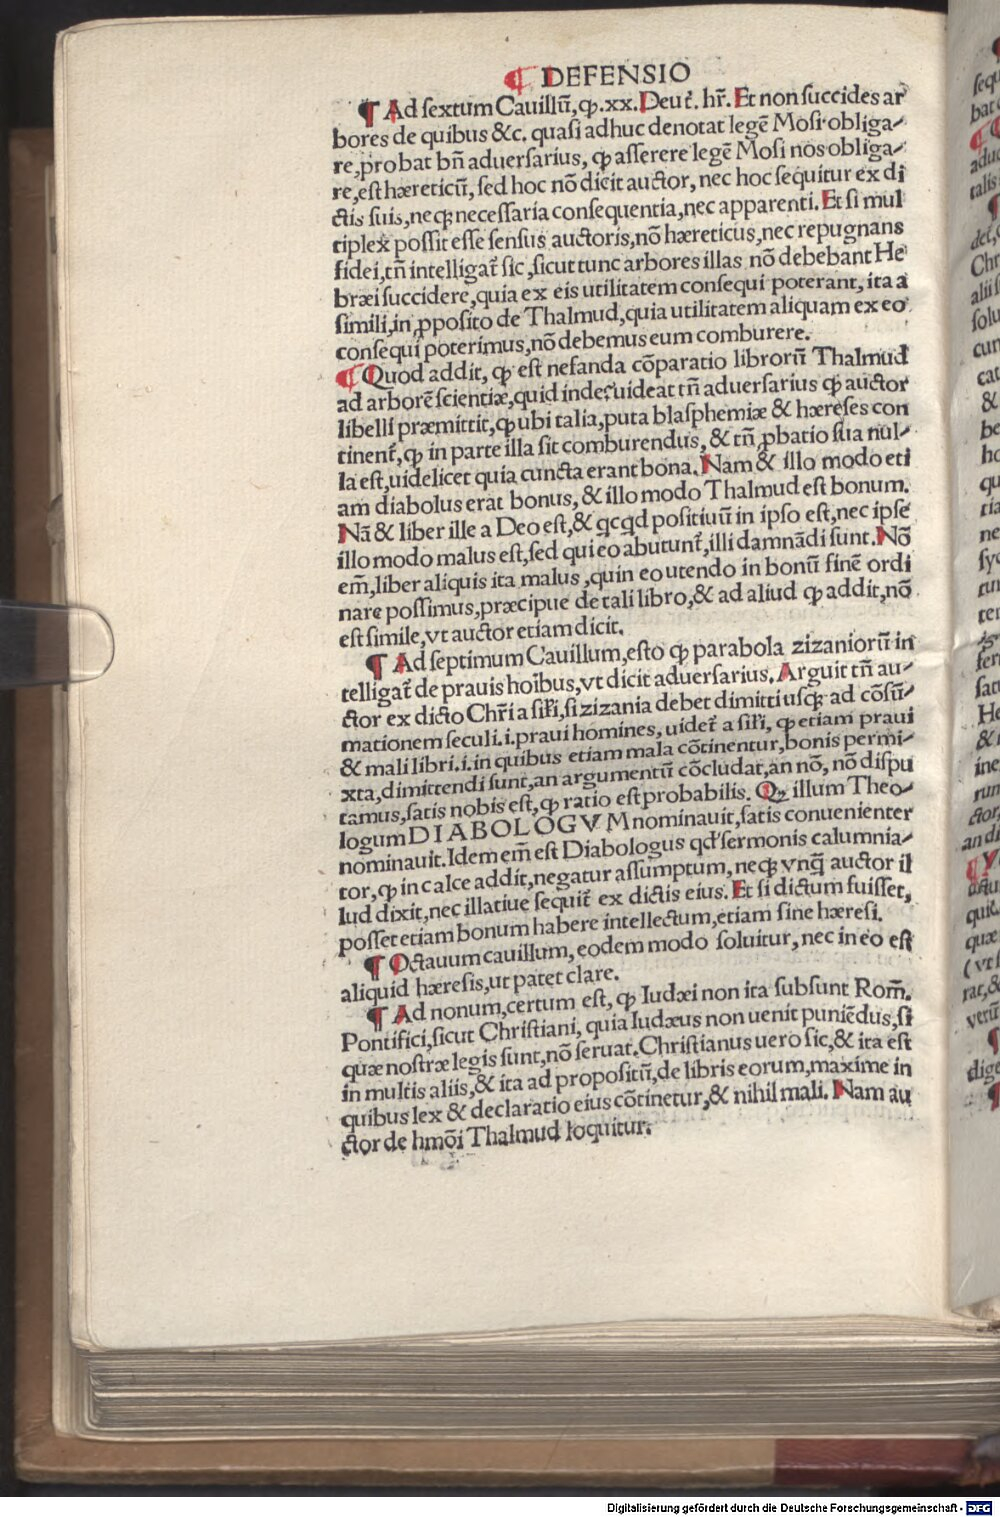 ¶ DEFENSIO
¶ Ad sextum Cauillũ, ꝙ .xx. Deut̃. hr̃. Et non succides ar
bores de quibus &c. quasi adhuc denotat legẽ Mosi obliga-
re, probat bñ aduersarius, ꝙ asserere legẽ Mosi nos obliga-
re, est hæreticũ, sed hoc nõ dicit auctor, nec hoc sequitur ex di
ctis suis, neqꝫ necessaria consequentia, nec apparenti. Et si mul
tiplex possit esse sensus auctoris, nõ hæreticus, nec repugnans
fidei, tñ intelligat̃ sic, sicut tunc arbores illas nõ debebant He
bræi succidere, quia ex eis utilitatem consequi poterant, ita a
simili, in ꝓposito de Thalmud, quia utilitatem aliquam ex eo
consequi poterimus, nõ debemus eum comburere.
¶ Quod addit, ꝙ est nefanda cõparatio librorũ Thalmud
ad arborẽ scientiæ, quid inde? uideat tñ aduersarius ꝙ auctor
libelli præmittit, ꝙ ubi talia, puta blasphemiæ & hæreses con
tinent̃, ꝙ in parte illa sit comburendus, & tñ ꝓbatio sua nul-
la est, uidelicet quia cuncta erant bona. Nam & illo modo eti
am diabolus erat bonus, & illo modo Thalmud est bonum.
Nã & liber ille a Deo est, & qcqd positiuũ in ipso est, nec ipse
illo modo malus est, sed qui eo abutunt̃, illi damnãdi sunt. Nõ
em̃, liber aliquis ita malus, quin eo utendo in bonũ finẽ ordi
nare possimus, præcipue de tali libro, & ad aliud ꝙ addit, nõ
est simile, vt auctor etiam dicit.
¶ Ad septimum Cauillum, esto ꝙ parabola zizaniorũ in
telligat̃ de prauis hoĩbus, vt dicit aduersarius. Arguit tñ au-
ctor ex dicto Chr̃i a sil̃i, si zizania debet dimitti usqꝫ ad cõsũ-
mationem seculi .i. praui homines, uidet̃ a sil̃i, ꝙ etiam praui
& mali libri .i. in quibus etiam mala cõtinentur, bonis permi-
xta, dimittendi sunt, an argumentũ cõcludat, an nõ, nõ dispu
tamus, satis nobis est, ꝙ ratio est probabilis. Qꝫ illum Theo-
logum DIABOLOGVM nominauit, satis conuenienter
nominauit. Idem em̃ est Diabologus qd̃ sermonis calumnia-
tor, ꝙ in calce addit, negatur assumptum, neqꝫ vnq̃ auctor il
lud dixit, nec illatiue sequit̃ ex dictis eius. Et si dictum fuisset,
posset etiam bonum habere intellectum, etiam sine hæresi.
¶ Octauum cauillum, eodem modo soluitur, nec in eo est
aliquid hæresis, ut patet clare.
¶ Ad nonum, certum est, ꝙ Iudæi non ita subsunt Rom̃.
Pontifici, sicut Christiani, quia Iudæus non uenit puniẽdus, si
quæ nostræ legis sunt, nõ seruat. Christianus uero sic, & ita est
in multis aliis, & ita ad propositũ, de libris eorum, maxime in
quibus lex & declaratio eius cõtinetur, & nihil mali. Nam au
ctor de hmõi Thalmud loquitur.
Digitalisierung gefördert durch die Deutsche Forschungsgemeinschaft - DFG